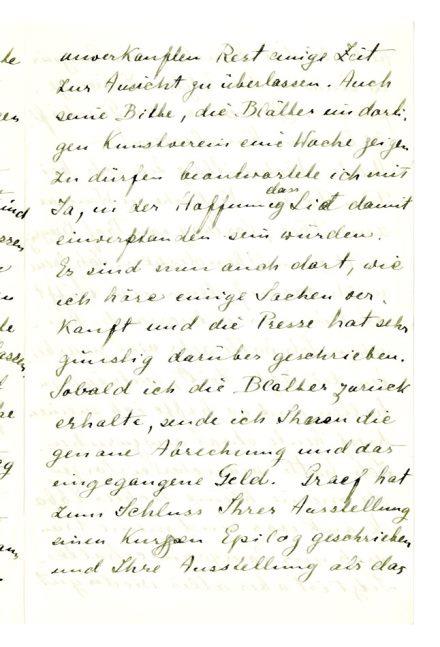 unverkauften Rest einige Zeit
zur Ansicht zu überlassen. Auch
seine Bitte, die Blätter im dorti-
gen Kunstverein eine Woche zeigen
zu dürfen beantwortete ich mit
Ja, in der Hoffnung dass Sie damit
einverstanden sein würden.
Es sind nun auch dort, wie
ich höre einige Sachen ver-
kauft und die Presse hat sehr
günstig darüber geschrieben.
Sobald ich die Blätter zurück
erhalte, sende ich Ihnen die
genaue Abrechnung und das
eingegangene Geld. Graef hat
zum Schluss Ihrer Ausstellung
einen Kurzen Epilog geschrieben
und Ihre Ausstellung als das